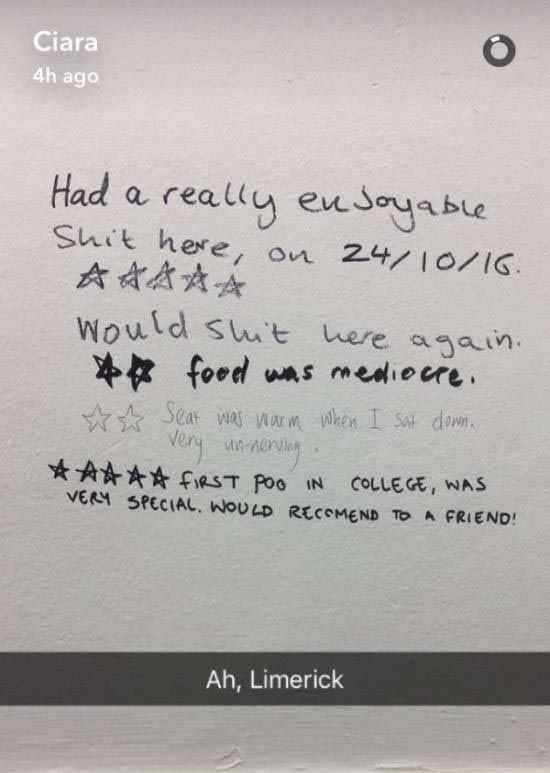 Ciara
4h ago
Had a really enjoyable
Shit here, on 24/10/16.
☆☆☆☆☆
Would shit here again.
★★ food was mediocre.
☆☆ Seat was warm when I sat down.
Very un-nerving.
★★★★★ FIRST POO IN COLLEGE, WAS
VERY SPECIAL. WOULD RECOMEND TO A FRIEND!
Ah, Limerick